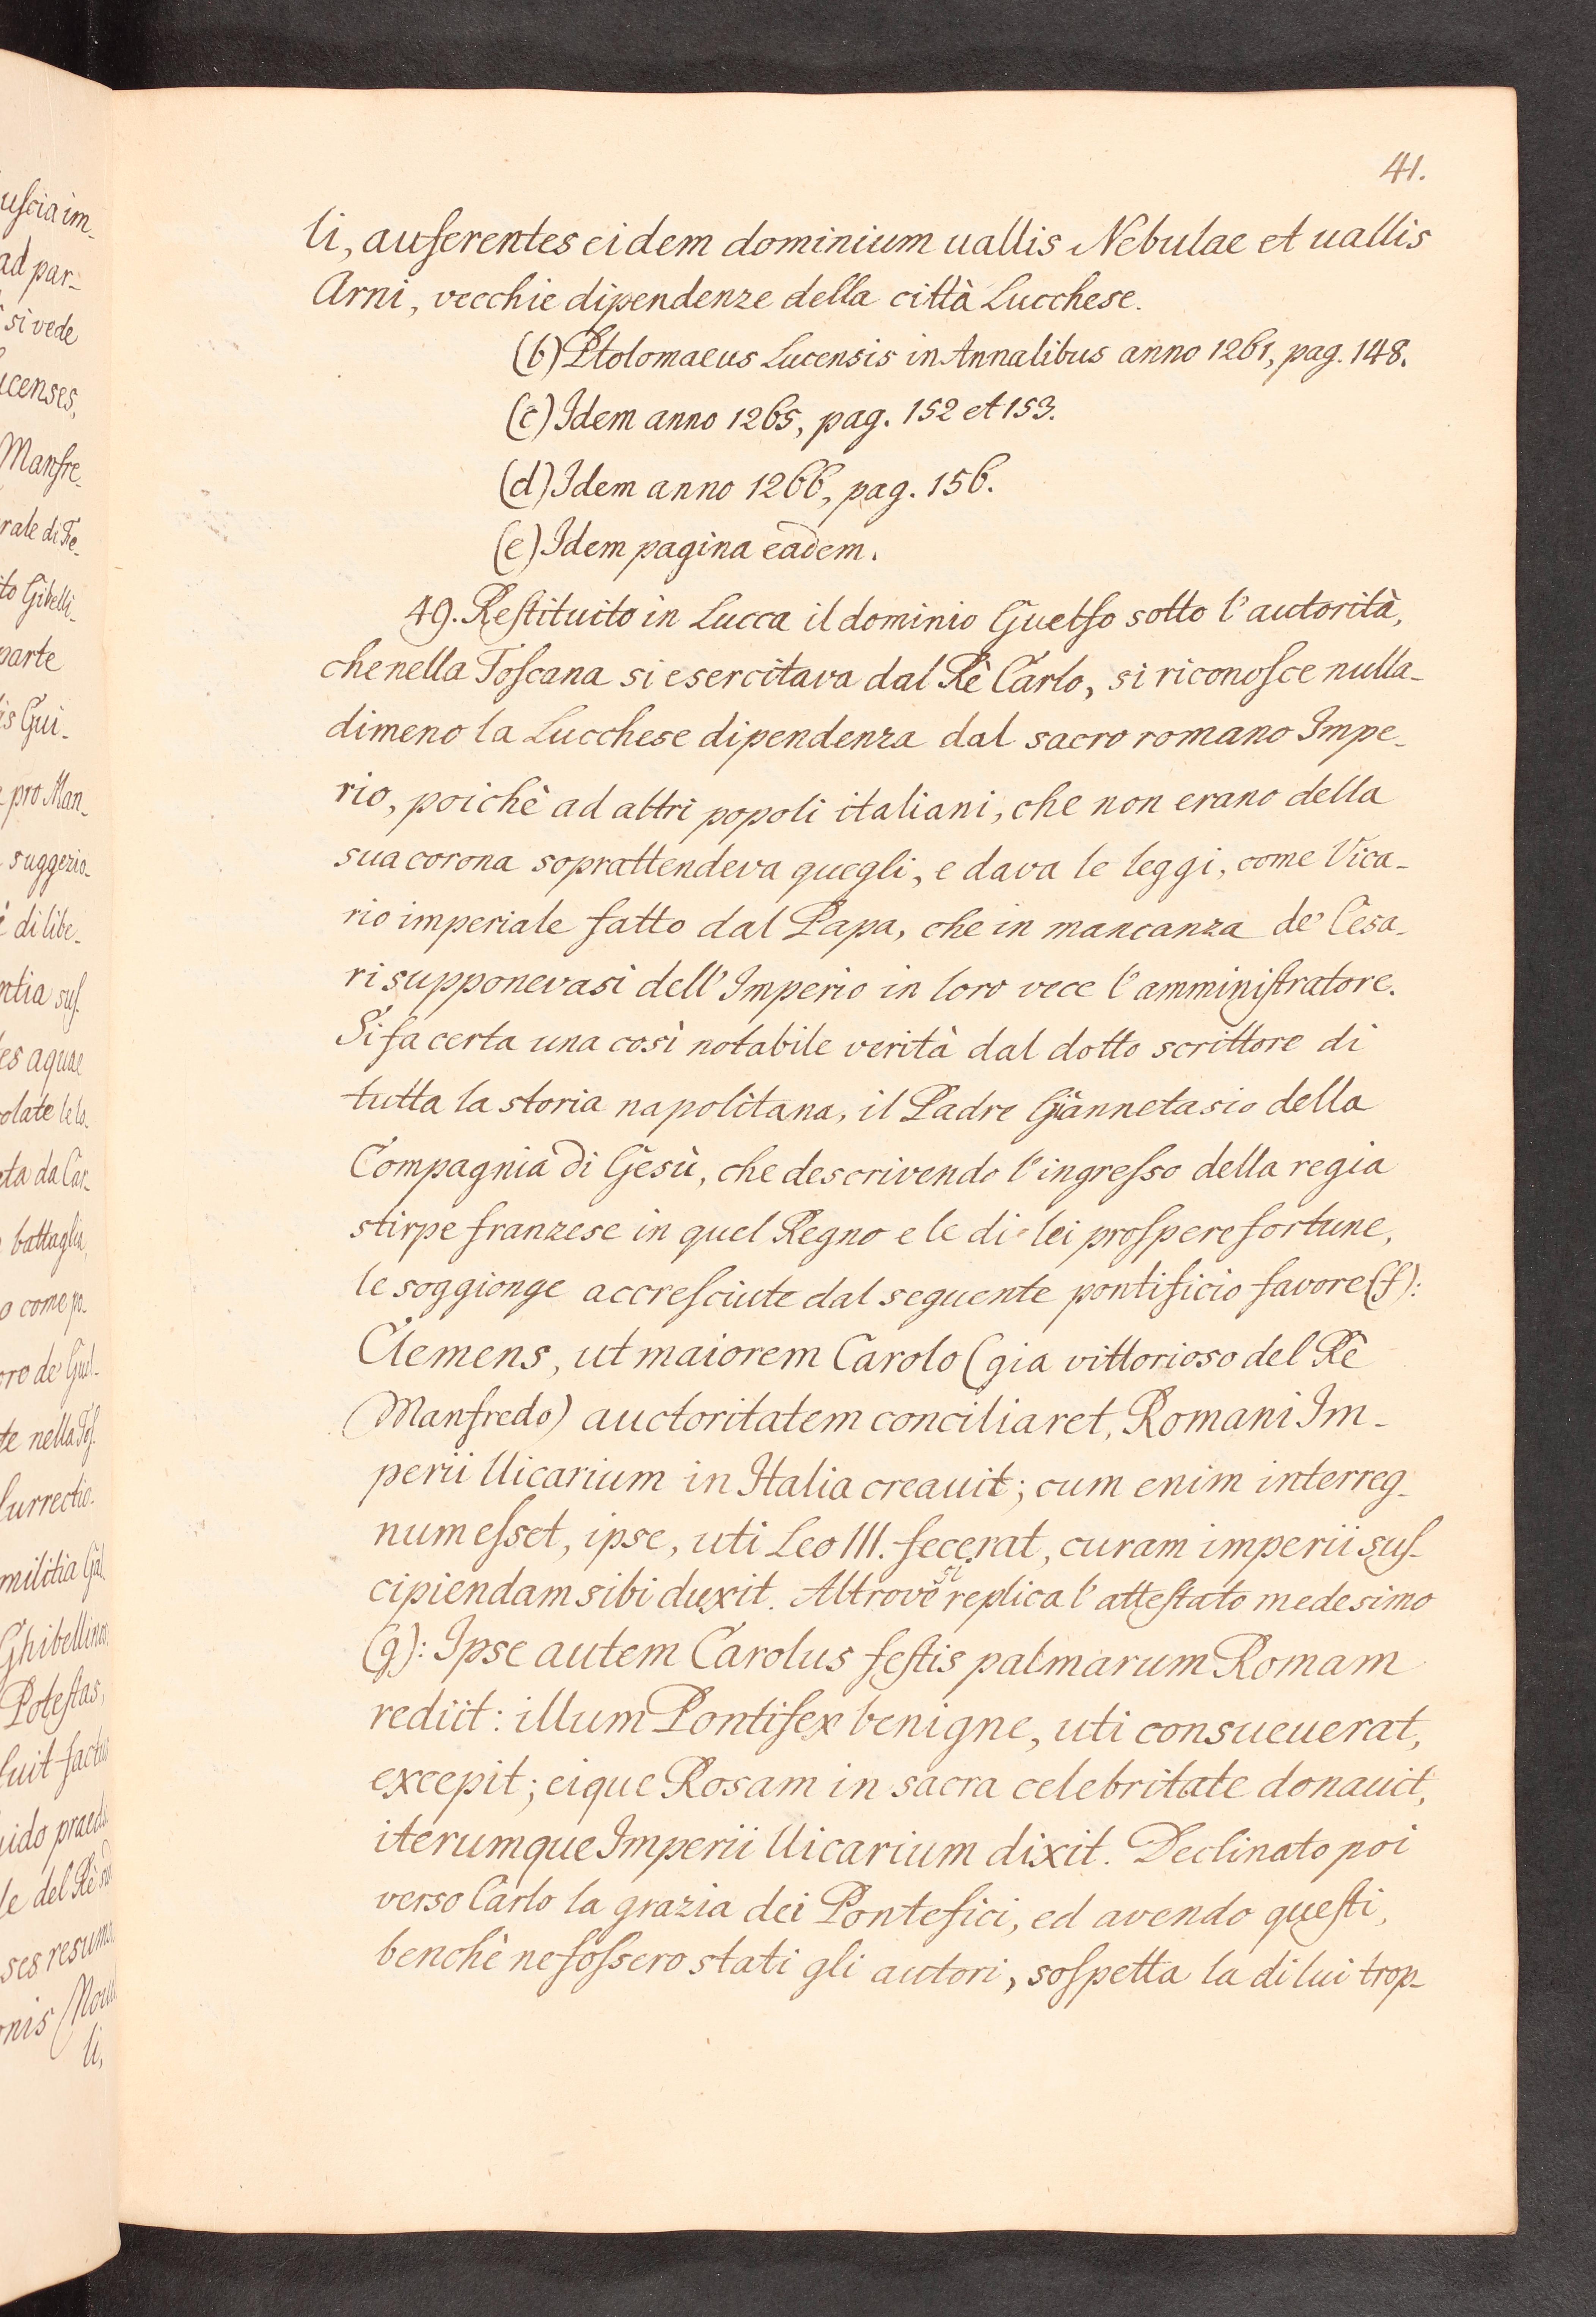 41.
li, auferentes eidem dominium uallis Nebulae et uallis
Arni, vecchie dipendenze della città Lucchese.
(b) Ptolomaeus Lucensis in Annalibus anno 1261, pag. 148.
(c) Idem anno 1265, pag. 152 et 153.
(d) Idem anno 1266, pag. 156.
(e) Idem pagina eadem.
49. Reſtituito in Lucca il dominio Guelfo sotto l'autorità,
che nella Toſcana si esercitava dal Rè Carlo, si riconoſce nulla-
dimeno la Lucchese dipendenza dal sacro romano Impe-
rio, poichè ad altri popoli italiani, che non erano della
sua corona soprattendeva quegli, e dava le leggi, come Vica-
rio imperiale fatto dal Papa, che in mancanza de' Cesa-
ri supponevasi dell'Imperio in loro vece l'amminiſtratore.
Si fa certa una così notabile verità dal dotto scrittore di
tutta la storia napolitana, il Padre Giannetasio della
Compagnia di Gesù, che descrivendo l'ingreſso della regia
stirpe franzese in quel Regno e le di lei proſpere fortune,
le soggionge accreſciute dal seguente pontificio favore (f):
Clemens, ut maiorem Carolo (gia vittorioso del Rè
Manfredo) auctoritatem conciliaret, Romani Im-
perii Uicarium in Italia creauit; cum enim interreg-
num eſset, ipse, uti Leo III. fecerat, curam imperii suſ-
cipiendam sibi duxit. Altrove si replica l'atteſtato medesimo
(g): Ipse autem Carolus feſtis palmarum Romam
rediit: illum Pontifex benigne, uti consueuerat,
excepit; eique Rosam in sacra celebritate donauit,
iterumque Imperii Uicarium dixit. Declinato poi
verso Carlo la grazia dei Pontefici, ed avendo queſti,
benchè ne foſsero stati gli autori, soſpetta la di lui trop-